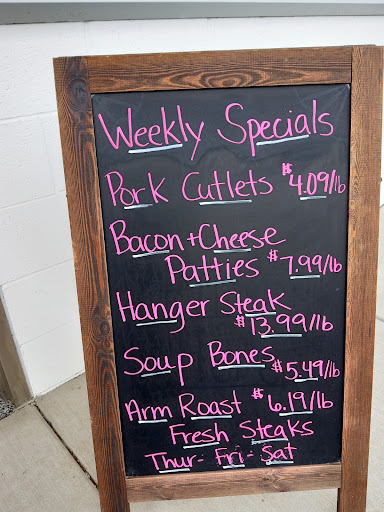 Weekly Specials
Pork Cutlets $4.09/lb
Bacon + Cheese
Patties $7.99/lb
Hanger Steak
$13.99/lb
Soup Bones $5.49/lb
Arm Roast $6.19/lb
Fresh Steaks
Thur - Fri - Sat